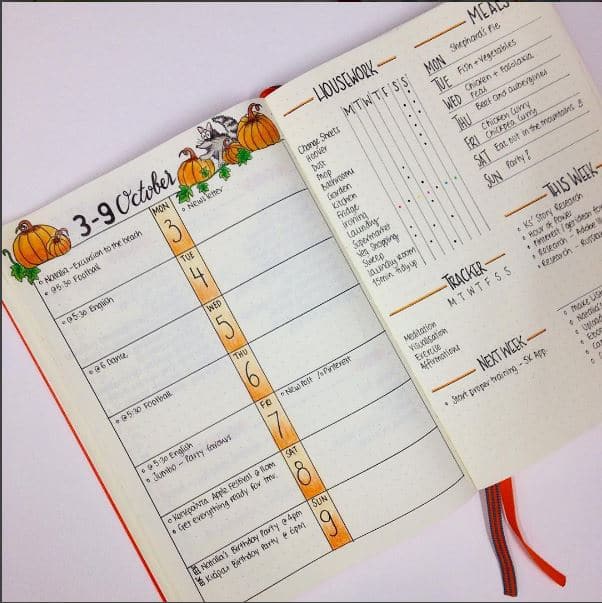 3-9 October
MON
3
Natalia - Excursion to the beach
@5:30 Football
Newsletter
TUE
4
@5:30 English
WED
5
@6 Dance
THU
6
@5:30 Football
New Post /o Pinterest
FRI
7
@5:30 English
Jumbo - Party favours
SAT
8
Apple Festival @ 11am
Get everything ready for tmr.
SUN
9
Natalia's Birthday Party @ 4pm
Birthday Party @ 6pm
HOUSEWORK
M T W T F S S
Change Sheets
Hoover
Dust
Mop
Bathrooms
Garden
Kitchen
Fridge
Ironing
Laundry
Supermarket
Veg Shopping
Sweep
Laundry Room
15min Tidy up
MEALS
MON Shepherd's Pie
TUE Fish + Vegetables
WED Chicken + Fasolakia
Peas
THU Beef and aubergines
FRI Chicken Curry
Chickpea Curry
SAT Eat out in the mountains
SUN Party?
TRACKER
M T W T F S S
Meditation
Visualisation
Exercise
Affirmations
THIS WEEK
Ks' Story Research
Hour of Power
Pinterest / app ideas for
Research / Adobe
Research -
NEXT WEEK
Start proper training - 5K App
Make
Natalia's
Upload